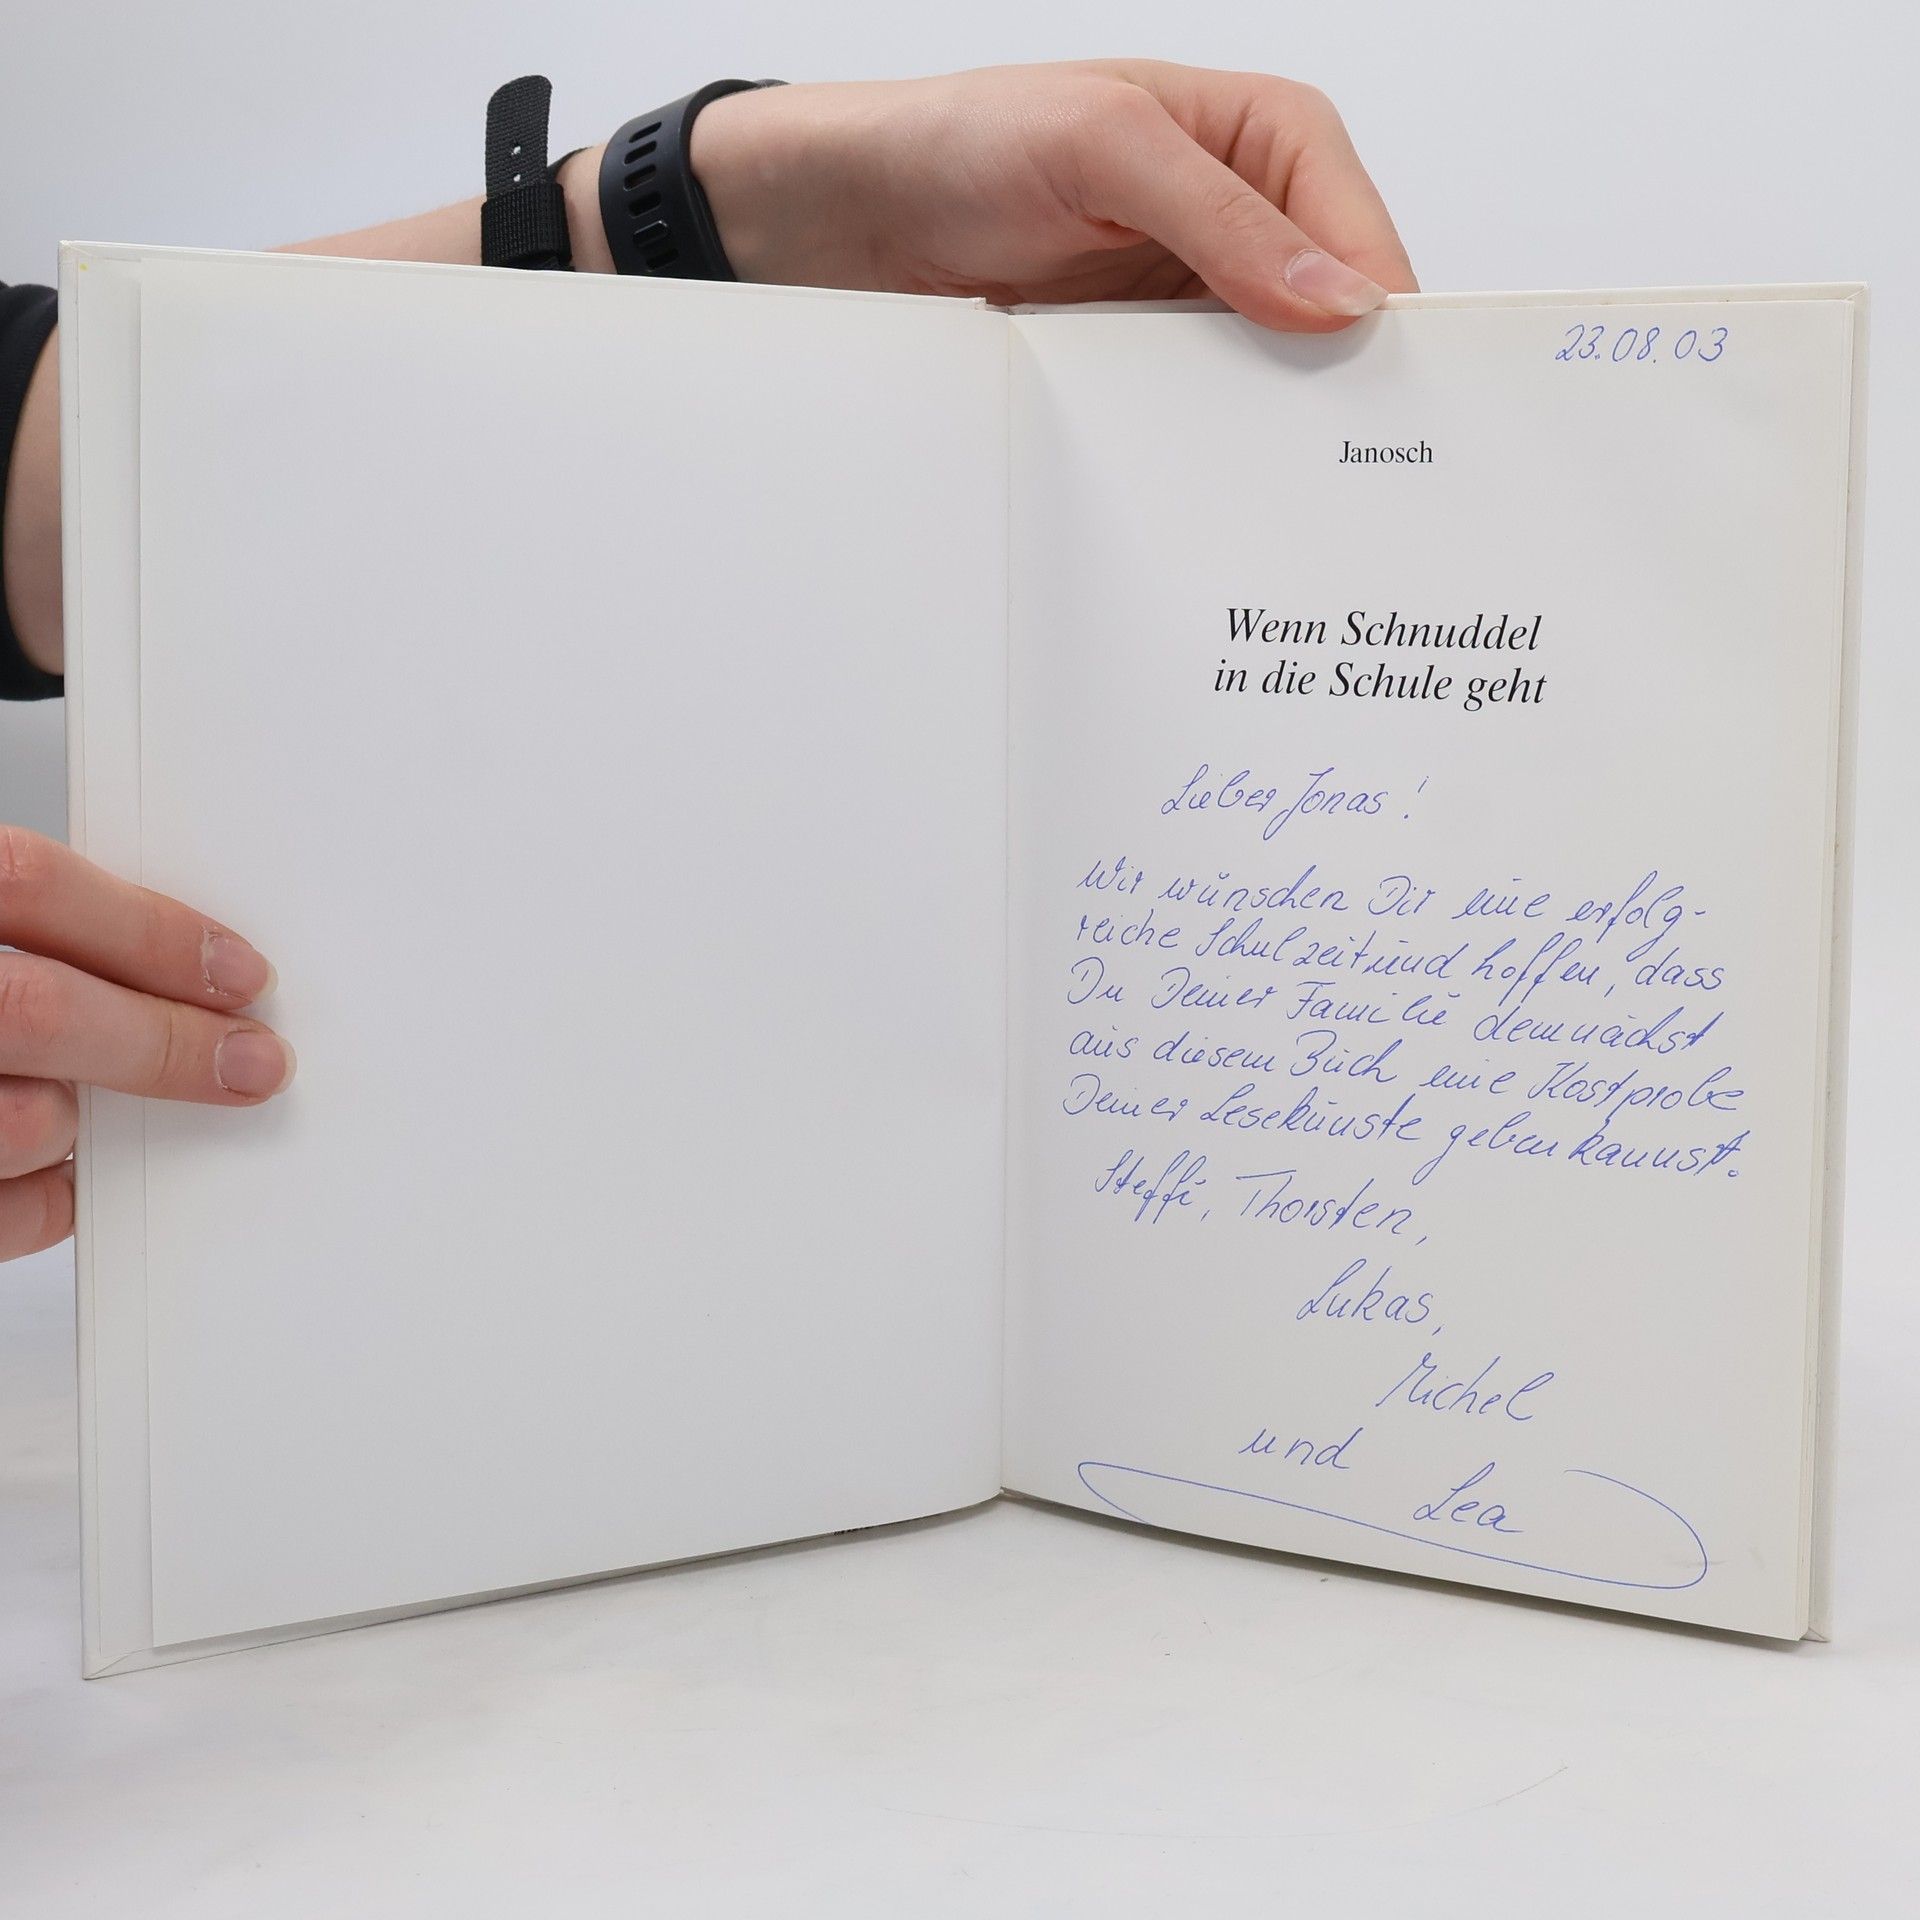 23.08.03
Janosch
Wenn Schnuddel
in die Schule geht
Lieber Jonas!
Wir wünschen Dir eine erfolg-
reiche Schulzeit und hoffen, dass
Du Deiner Familie demnächst
aus diesem Buch eine Kostprobe
Deiner Lesekünste geben kannst.
Steffi, Thorsten,
Lukas,
Michel
und
Lea